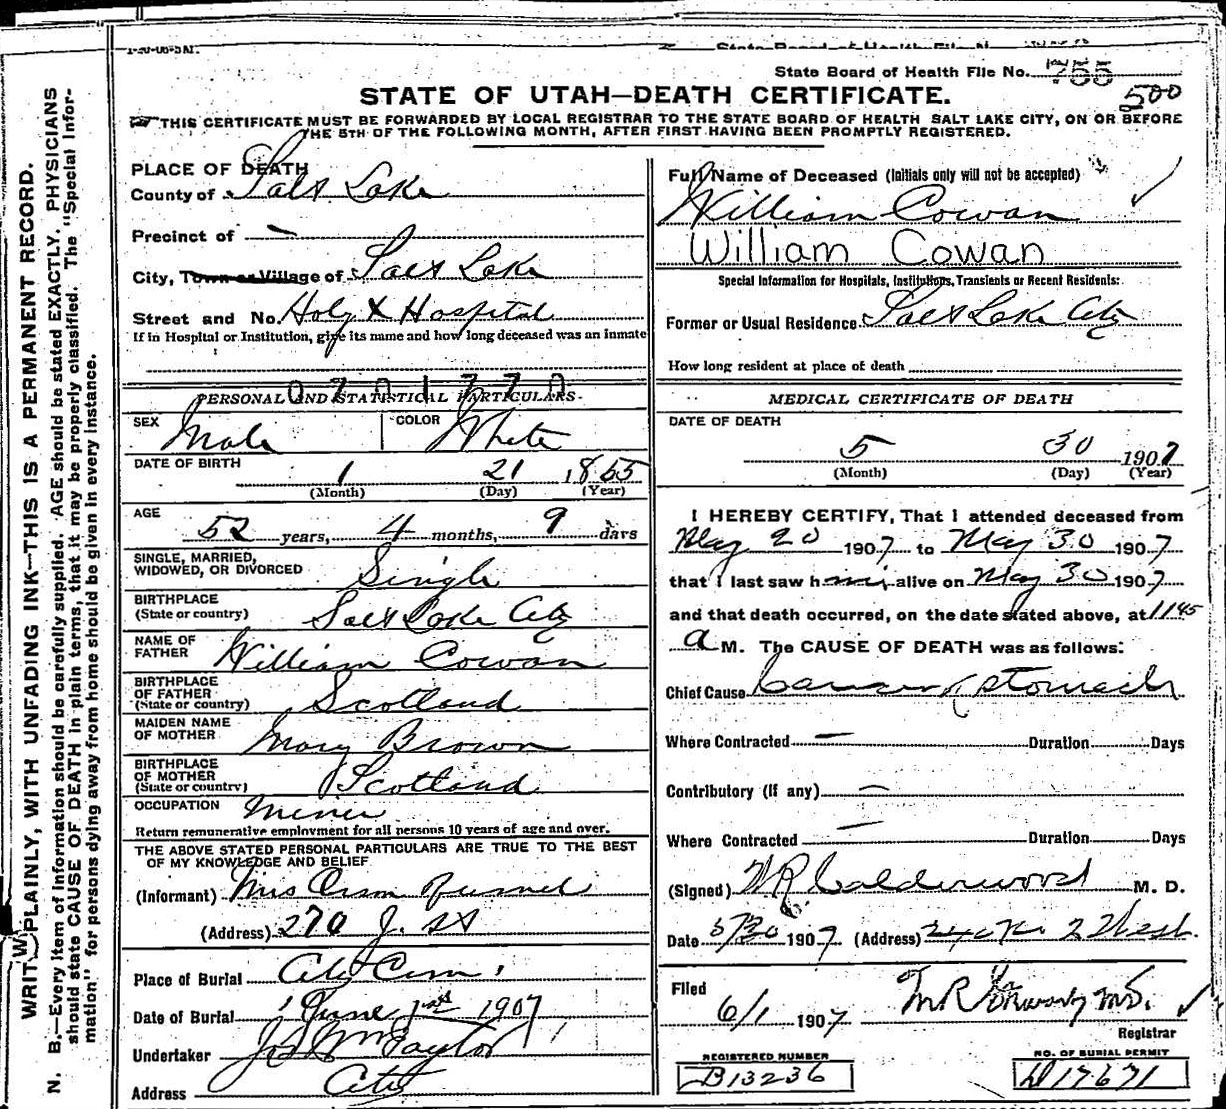 State Board of Health File No. 755
500
STATE OF UTAH—DEATH CERTIFICATE.
THIS CERTIFICATE MUST BE FORWARDED BY LOCAL REGISTRAR TO THE STATE BOARD OF HEALTH SALT LAKE CITY, ON OR BEFORE
THE 5TH OF THE FOLLOWING MONTH, AFTER FIRST HAVING BEEN PROMPTLY REGISTERED.
WRITE PLAINLY, WITH UNFADING INK—THIS IS A PERMANENT RECORD.
N. B.—Every item of information should be carefully supplied. AGE should be stated EXACTLY. PHYSICIANS
should state CAUSE OF DEATH in plain terms, that it may be properly classified. The "Special Infor-
mation" for persons dying away from home should be given in every instance.
PLACE OF DEATH
County of Salt Lake
Precinct of —
City, Town or Village of Salt Lake
Street and No. Holy X Hospital
If in Hospital or Institution, give its name and how long deceased was an inmate
0701770
PERSONAL AND STATISTICAL PARTICULARS
SEX Male COLOR White
DATE OF BIRTH 1 21 1855
(Month) (Day) (Year)
AGE
52 years, 4 months, 9 days
SINGLE, MARRIED,
WIDOWED, OR DIVORCED Single
BIRTHPLACE
(State or country) Salt Lake City
NAME OF
FATHER William Cowan
BIRTHPLACE
OF FATHER
(State or country) Scotland
MAIDEN NAME
OF MOTHER Mary Brown
BIRTHPLACE
OF MOTHER
(State or country) Scotland
OCCUPATION Miner
Return remunerative employment for all persons 10 years of age and over.
THE ABOVE STATED PERSONAL PARTICULARS ARE TRUE TO THE BEST
OF MY KNOWLEDGE AND BELIEF
(Informant) Mrs
(Address) 270 J. St
Place of Burial City Cem
Date of Burial June 1st 1907
Undertaker Jos Wm Taylor
Address City
Full Name of Deceased (Initials only will not be accepted)
William Cowan
William Cowan
Special Information for Hospitals, Institutions, Transients or Recent Residents:
Former or Usual Residence Salt Lake City
How long resident at place of death
MEDICAL CERTIFICATE OF DEATH
DATE OF DEATH
5 30 1907
(Month) (Day) (Year)
I HEREBY CERTIFY, That I attended deceased from
May 20 1907 to May 30 1907
that I last saw him alive on May 30 1907
and that death occurred, on the date stated above, at 1145
a M. The CAUSE OF DEATH was as follows:
Chief Cause Cancer stomach
Where Contracted — Duration Days
Contributory (If any) —
Where Contracted — Duration Days
(Signed) W R Calderwood M. D.
Date 5/30 1907 (Address)
Filed
6/1 1907 M.D.
Registrar
REGISTERED NUMBER
B13236
NO. OF BURIAL PERMIT
D17671